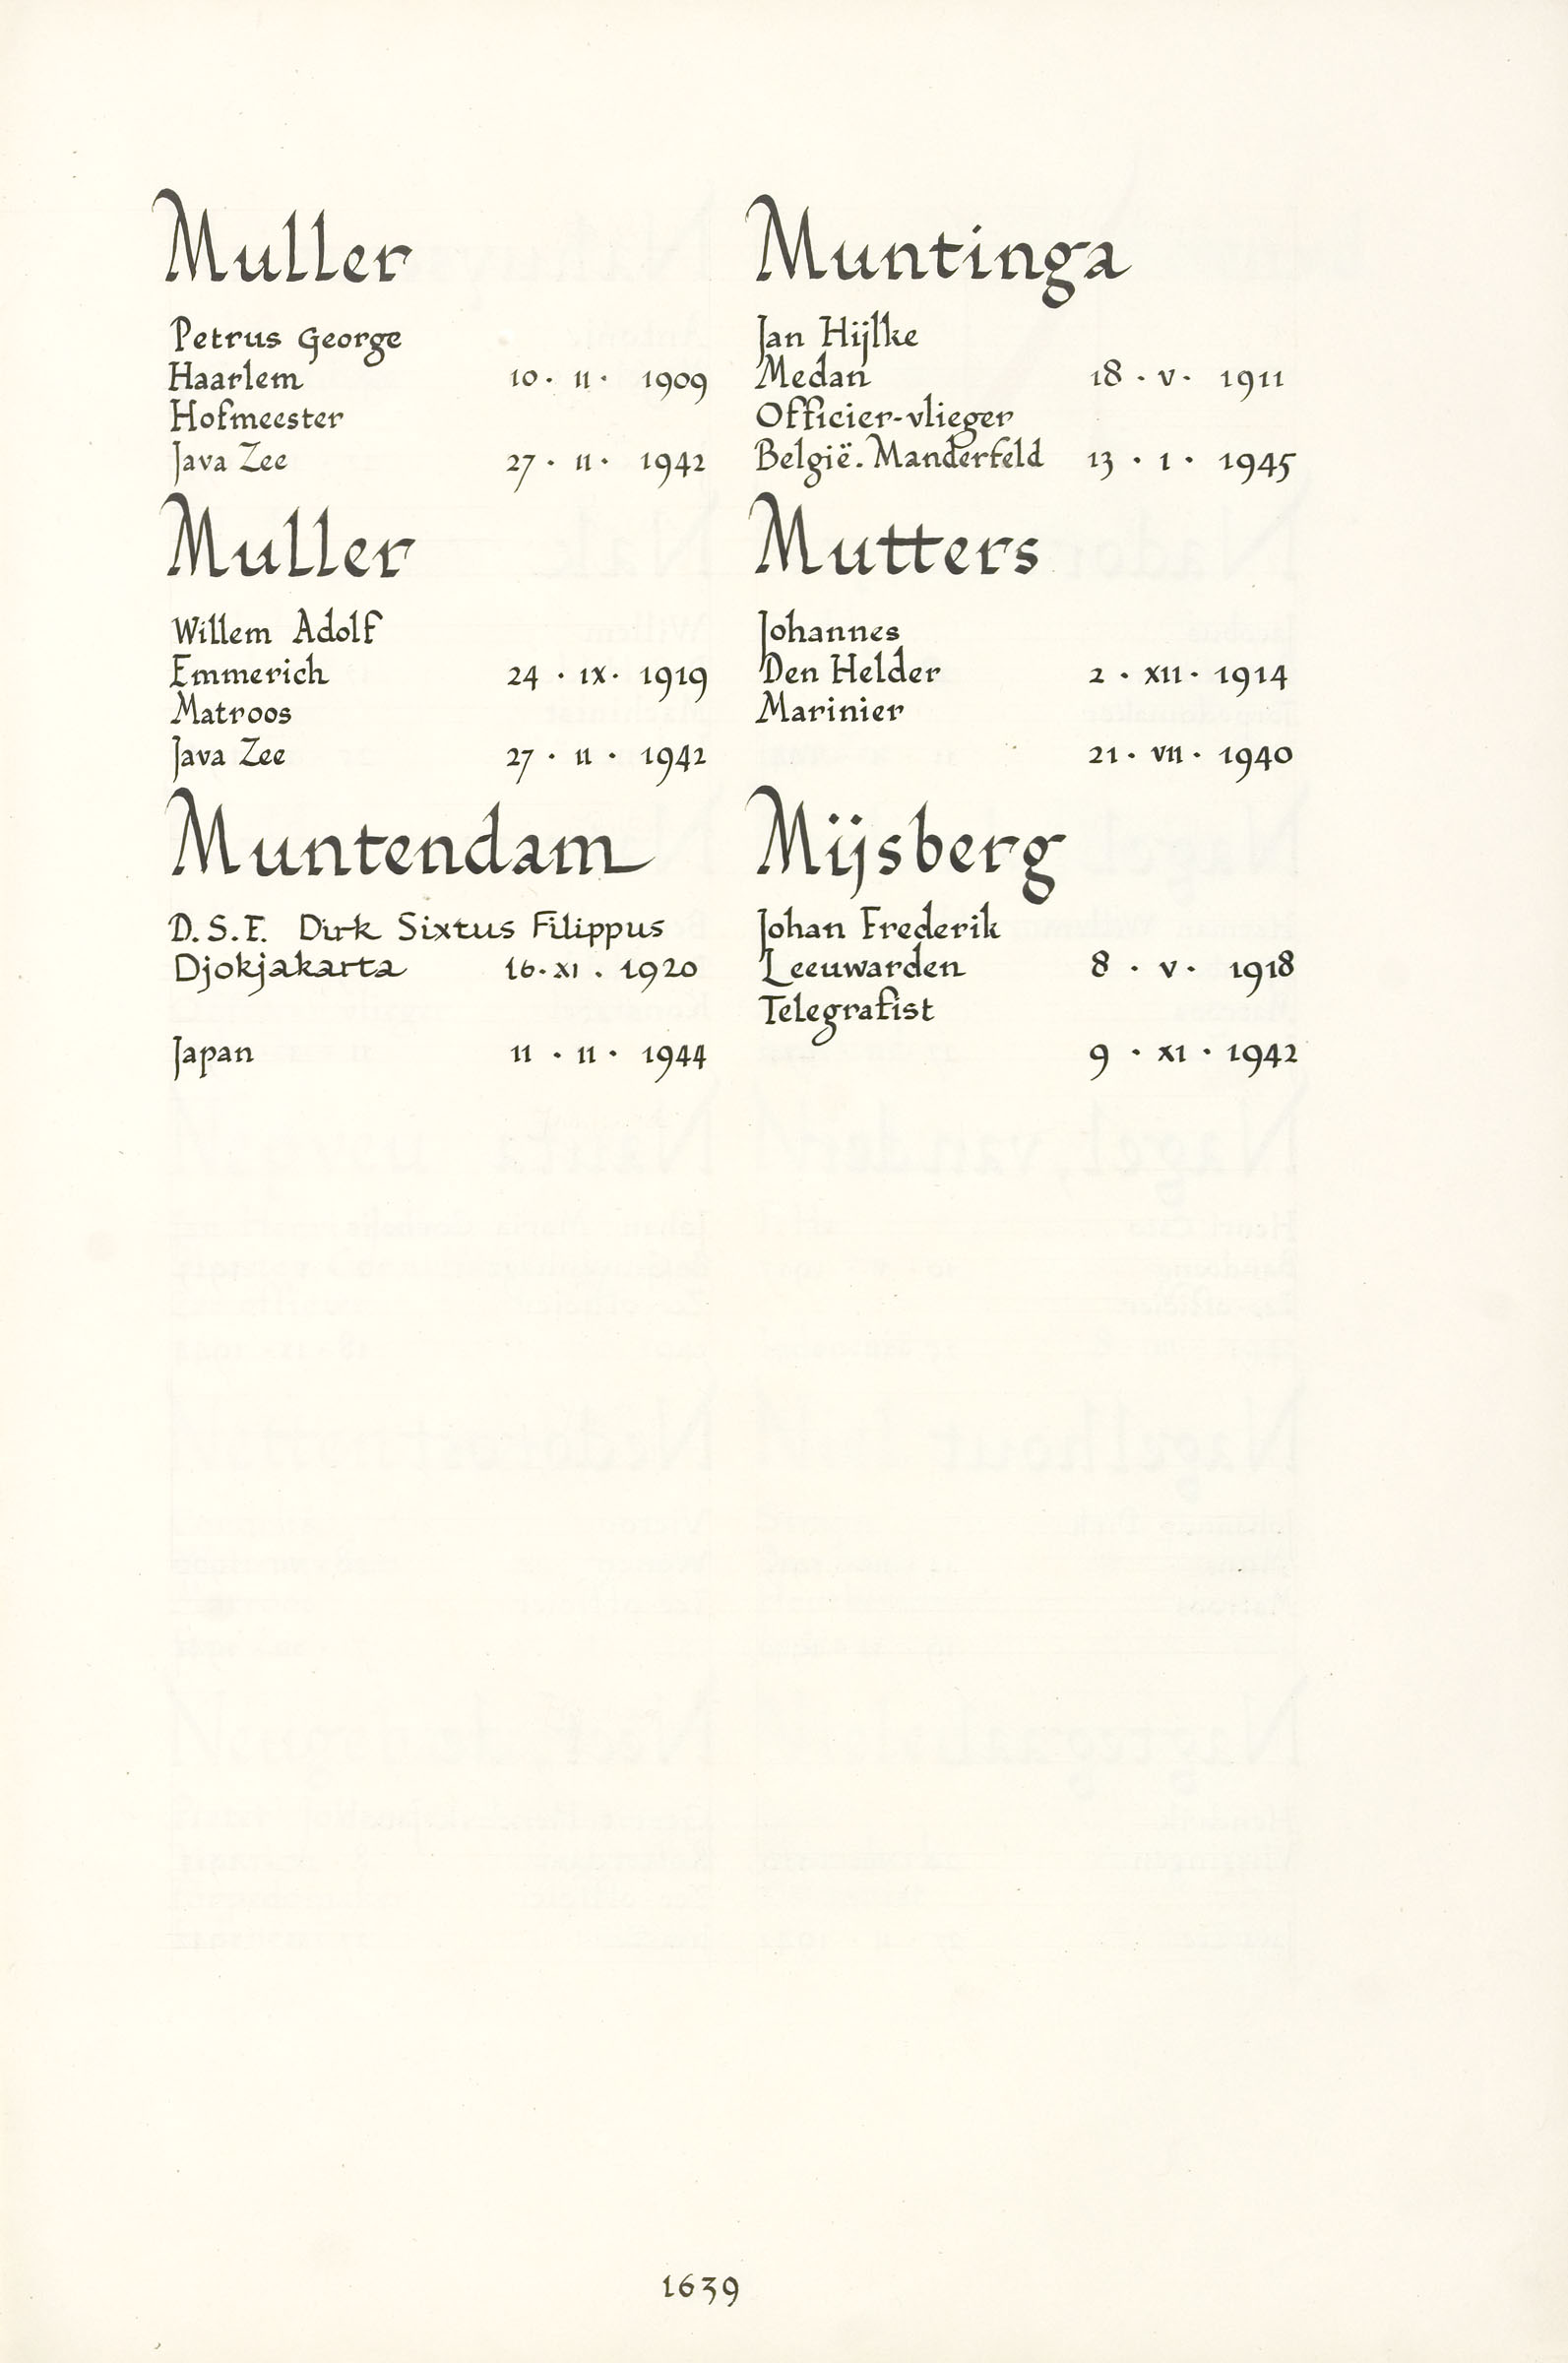 Muller
Petrus George
Haarlem 10 · II · 1909
Hofmeester
Java Zee 27 · II · 1942
Muller
Willem Adolf
Emmerich 24 · IX · 1919
Matroos
Java Zee 27 · II · 1942
Muntendam
D.S.F. Dirk Sixtus Filippus
Djokjakarta 16 · XI . 1920
Japan 11 · II · 1944
Muntinga
Jan Hijlke
Medan 18 · V · 1911
Officier-vlieger
België. Manderfeld 13 · I · 1945
Mutters
Johannes
Den Helder 2 · XII · 1914
Marinier
21 · VII · 1940
Mijsberg
Johan Frederik
Leeuwarden 8 · V · 1918
Telegrafist
9 · XI · 1942
1639